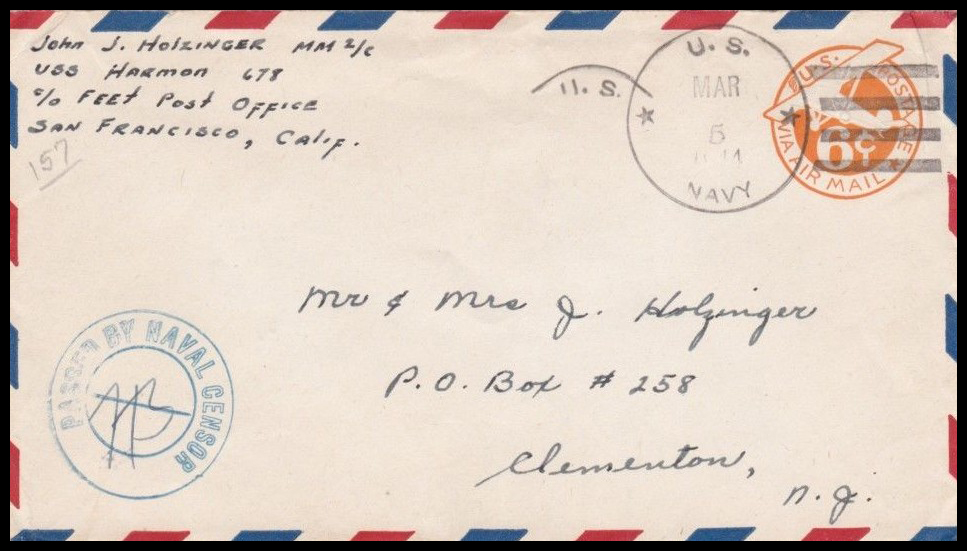 John J. Holzinger MM 2/c
USS Harmon 678
c/o Feet Post Office
San Francisco, Calif.
157
U.S.
U.S.
MAR
5
NAVY
U.S. POSTAGE
6¢
VIA AIR MAIL
Mr & Mrs J. Holzinger
P.O. Box # 258
Clementon,
N.J.
PASSED BY NAVAL CENSOR